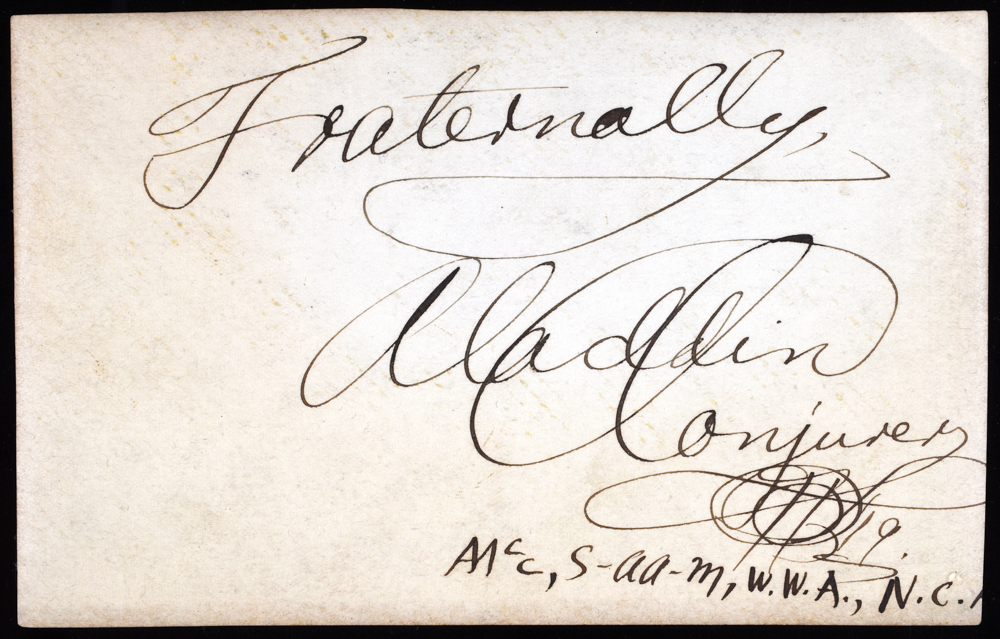 Fraternally,
Aladdin
Conjurer
Mcc, S-aa-m, W.W.A., N.C.